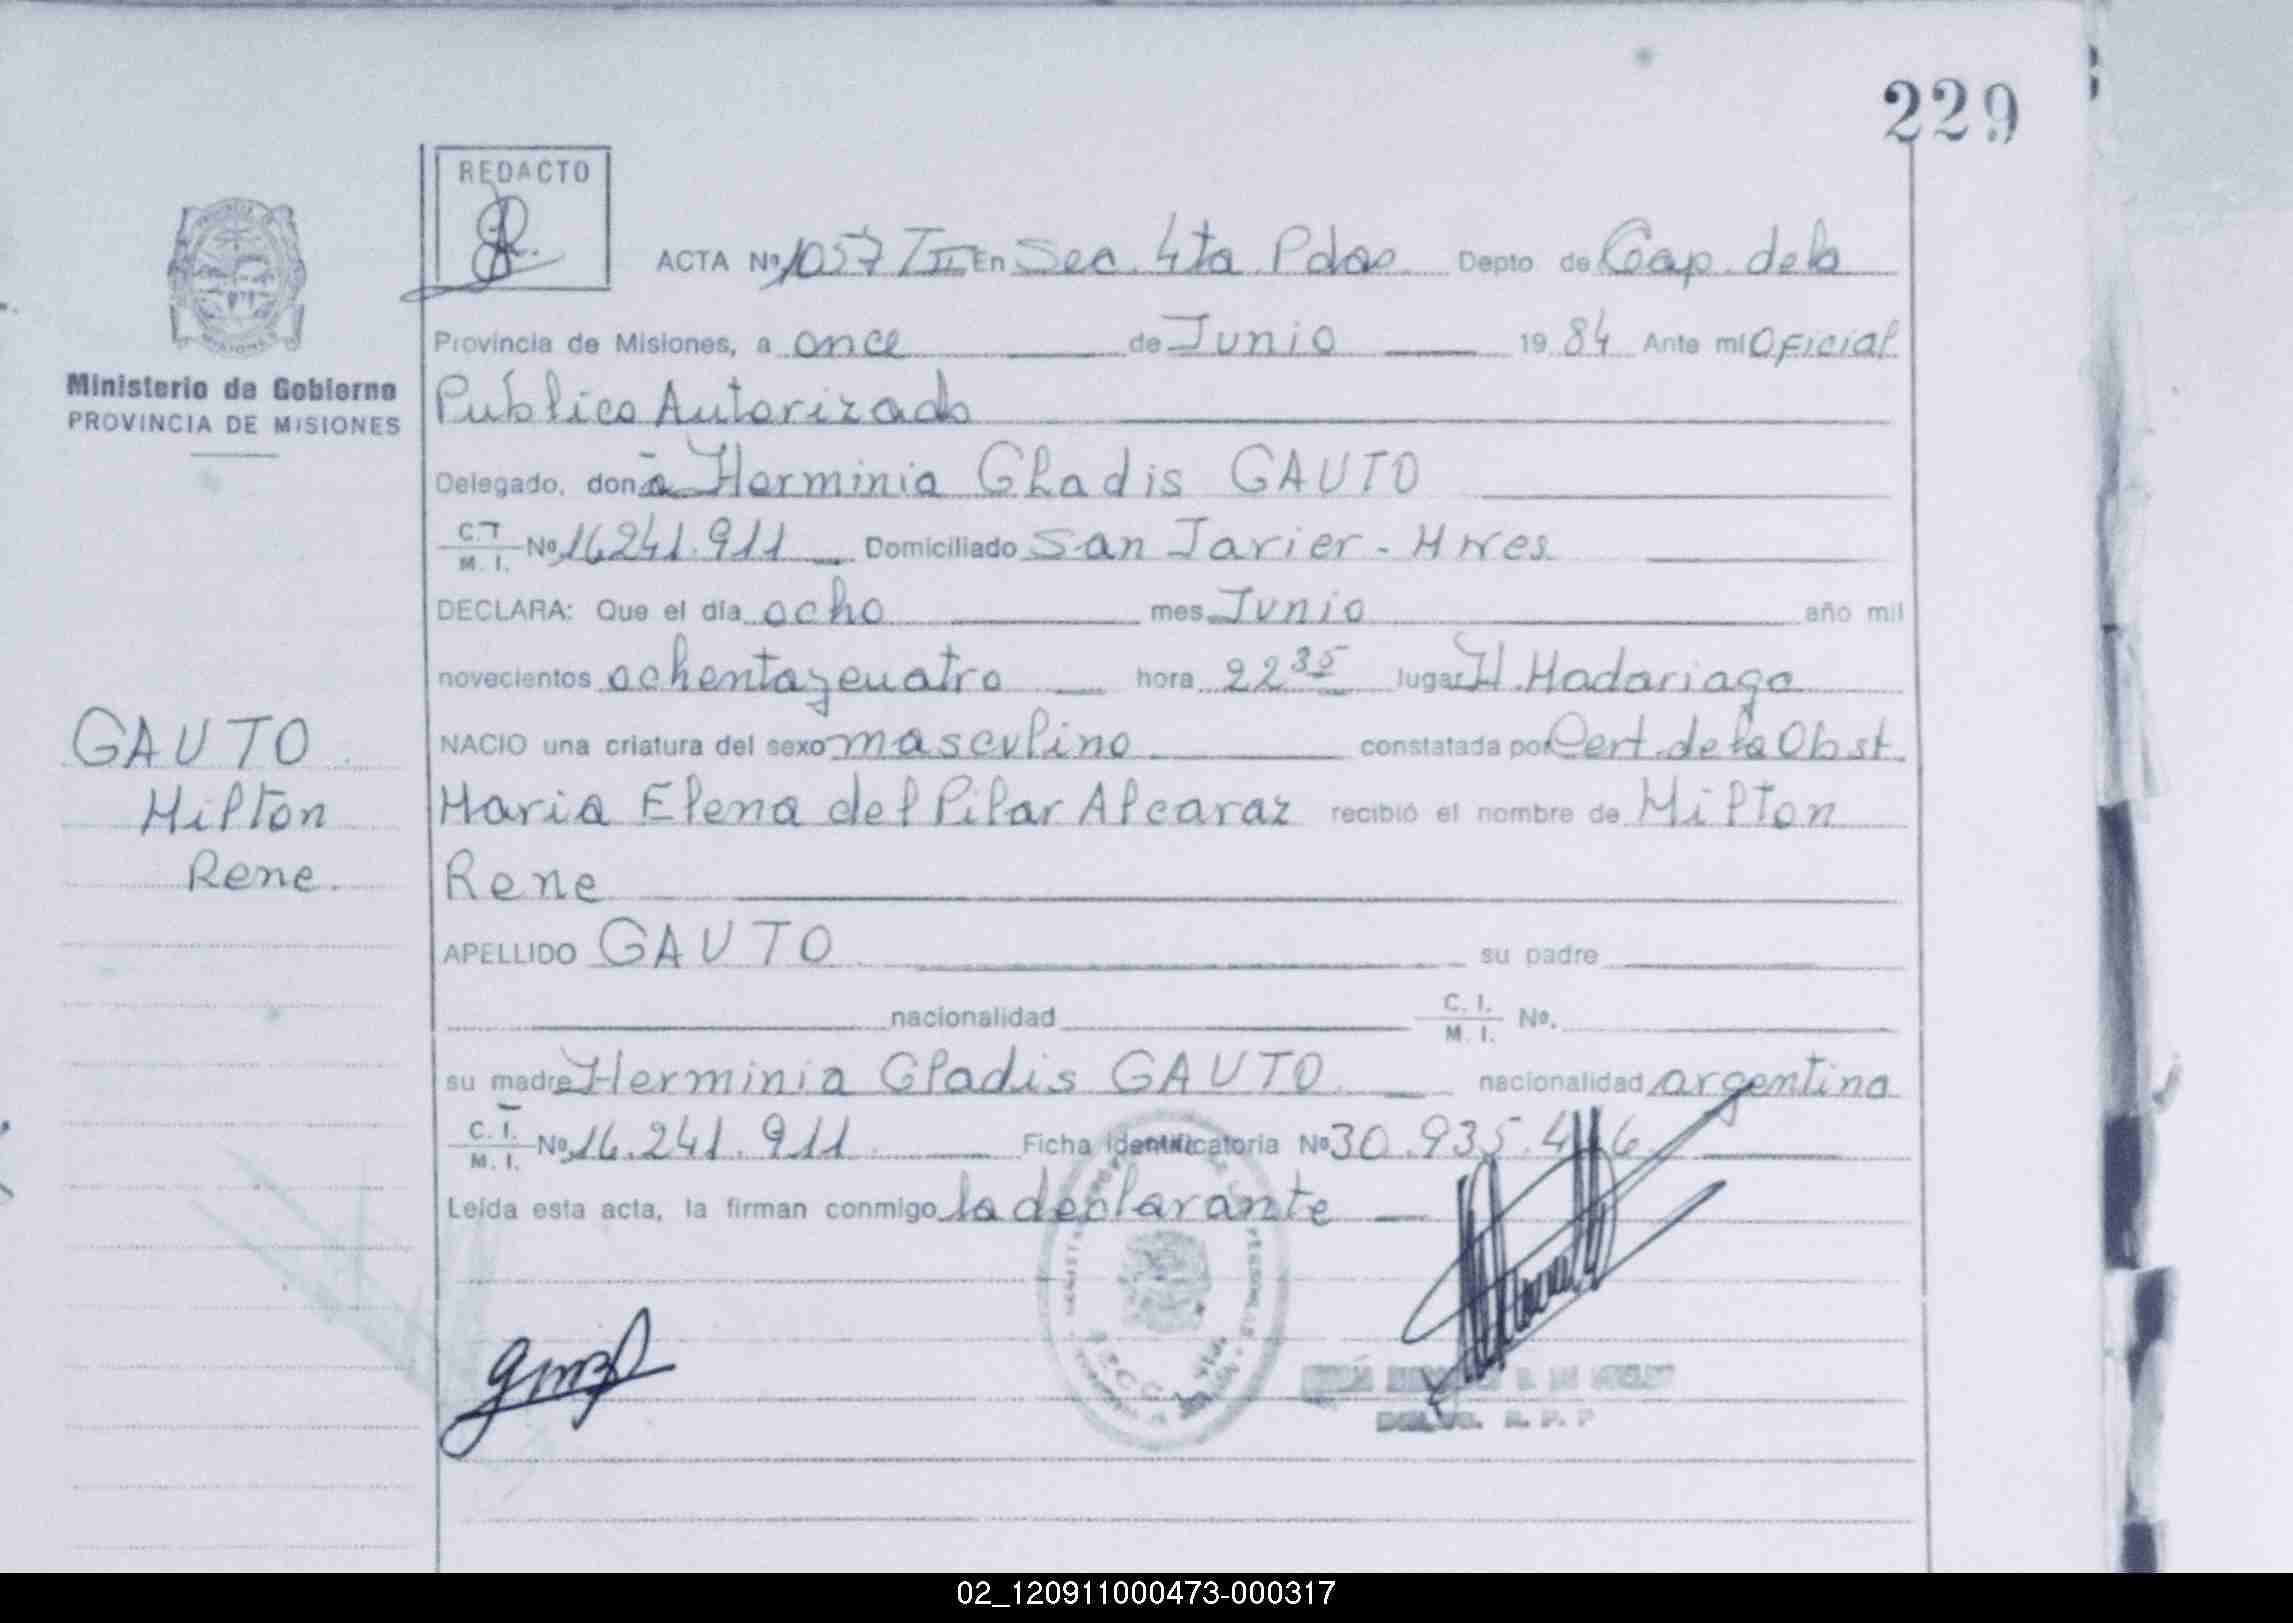 229
REDACTO
ACTA Nº 1057 TII En Sec. 4ta Pdas Depto de Cap. dela
Provincia de Misiones, a once de Junio 1984 Ante mi Oficial
Ministerio de Gobierno
PROVINCIA DE MISIONES
Publico Autorizado
Delegado, doña Herminia Gladis GAUTO
C.I. M. I. Nº 16241.911 Domiciliado San Javier - Mnes
DECLARA: Que el día ocho mes Junio año mil
novecientos ochentaycuatro hora 22 35 lugar H. Madariaga
NACIO una criatura del sexo masculino constatada por Cert. de la Obst.
GAUTO
Milton
Rene.
Maria Elena del Pilar Alcaraz recibió el nombre de Milton
Rene
APELLIDO GAUTO su padre
nacionalidad C. I. M. I. Nº.
su madre Herminia Gladis GAUTO nacionalidad argentina
C. I. M. I. Nº 16.241.911 Ficha identificatoria Nº 30.935.4 6
Leída esta acta, la firman conmigo la declarante
02_120911000473-000317